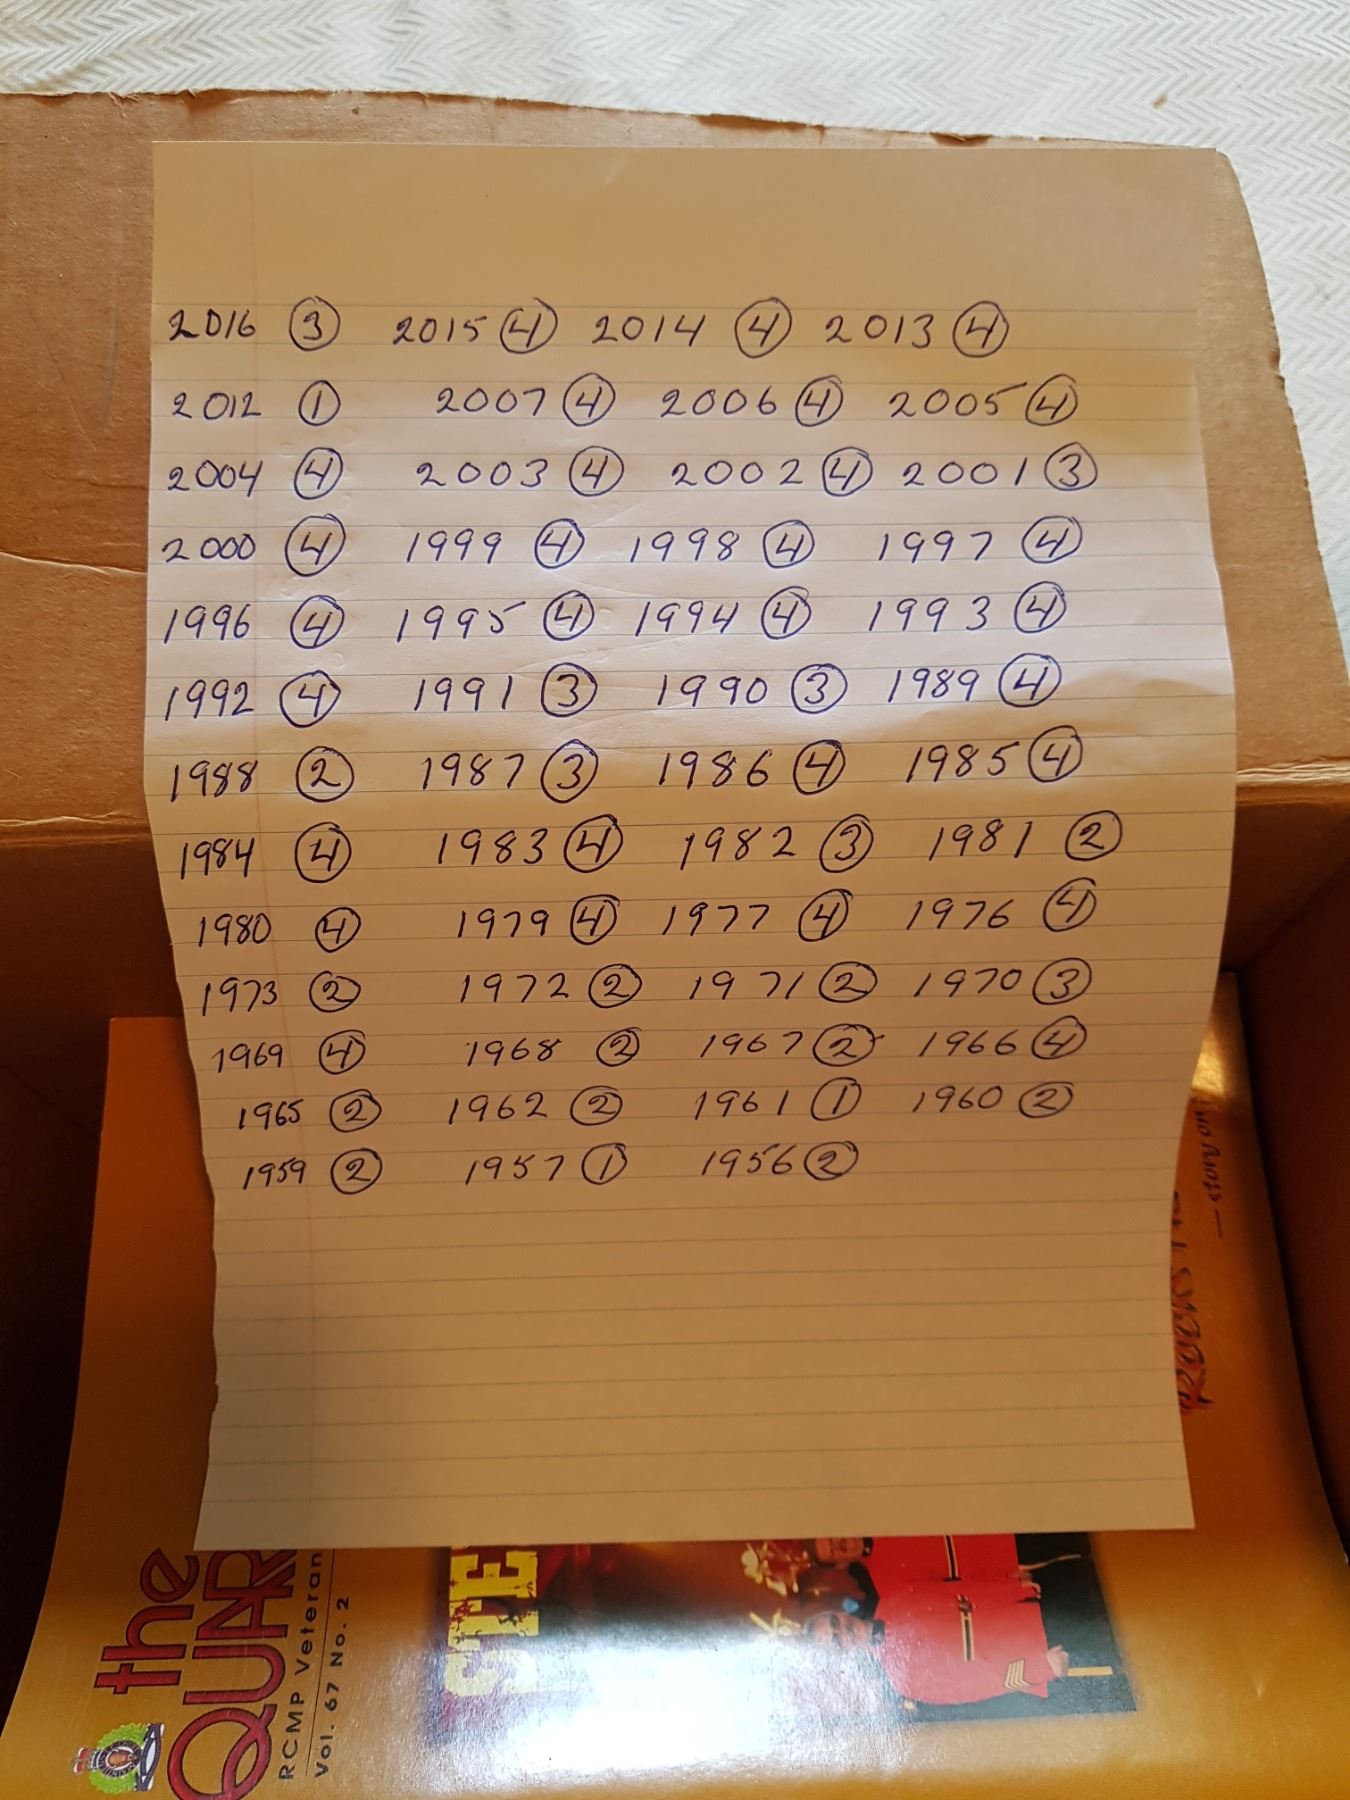 2016 3 2015 4 2014 4 2013 4
2012 1 2007 4 2006 4 2005 4
2004 4 2003 4 2002 4 2001 3
2000 4 1999 4 1998 4 1997 4
1996 4 1995 4 1994 4 1993 4
1992 4 1991 3 1990 3 1989 4
1988 2 1987 3 1986 4 1985 4
1984 4 1983 4 1982 3 1981 2
1980 4 1979 4 1977 4 1976 4
1973 2 1972 2 1971 2 1970 3
1969 4 1968 2 1967 2 1966 4
1965 2 1962 2 1961 1 1960 2
1959 2 1957 1 1956 2
— story on
the
RCMP Veteran
Vol. 67 No. 2